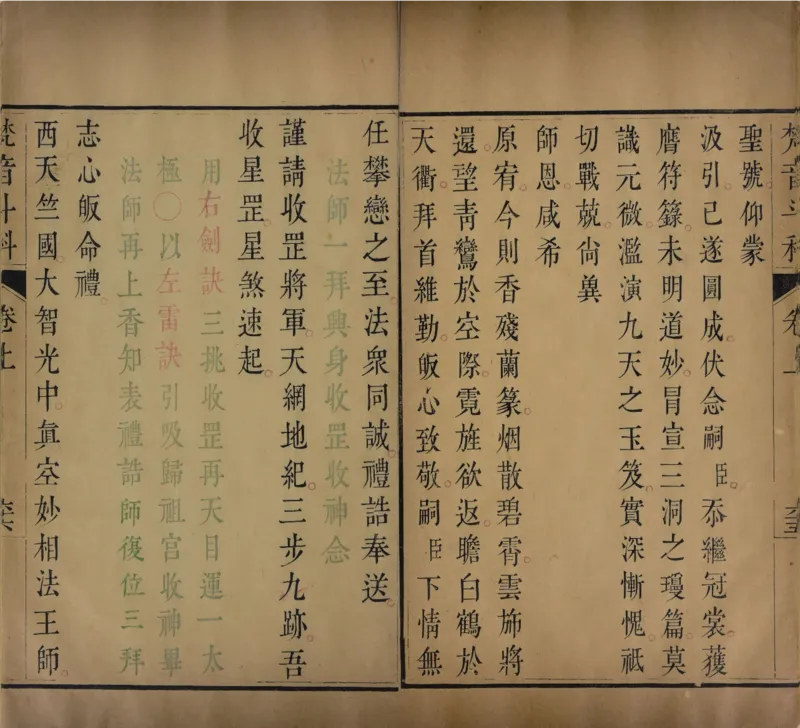 梵音斗科 卷上
聖號。仰蒙
汲引。已遂圓成。伏念嗣臣。忝繼冠裳。獲
膺符籙。未明道妙。冒宣三洞之瓊篇。莫
識元微。濫演九天之玉笈。實深慚愧。祇
切戰兢。尙兾
師恩。咸希
原宥。今則香殘蘭篆。烟散碧霄。雲斾將
還。望靑鸞於空際。霓旌欲返。瞻白鶴於
天衢。拜首維勤。皈心致敬。嗣臣下情無
任攀戀之至。法衆同誠。禮誥奉送。
法師一拜興身收罡收神念
謹請收罡將軍。天網地紀。三步九跡。吾
收星罡。星煞速起。
用右劍訣三挑收罡再天目運一太
極〇以左雷訣引吸歸祖宫收神畢
法師再上香知表禮誥師復位三拜
志心皈命禮。
西天竺國。大智光中。眞空妙相法王師。
梵音斗科 卷上